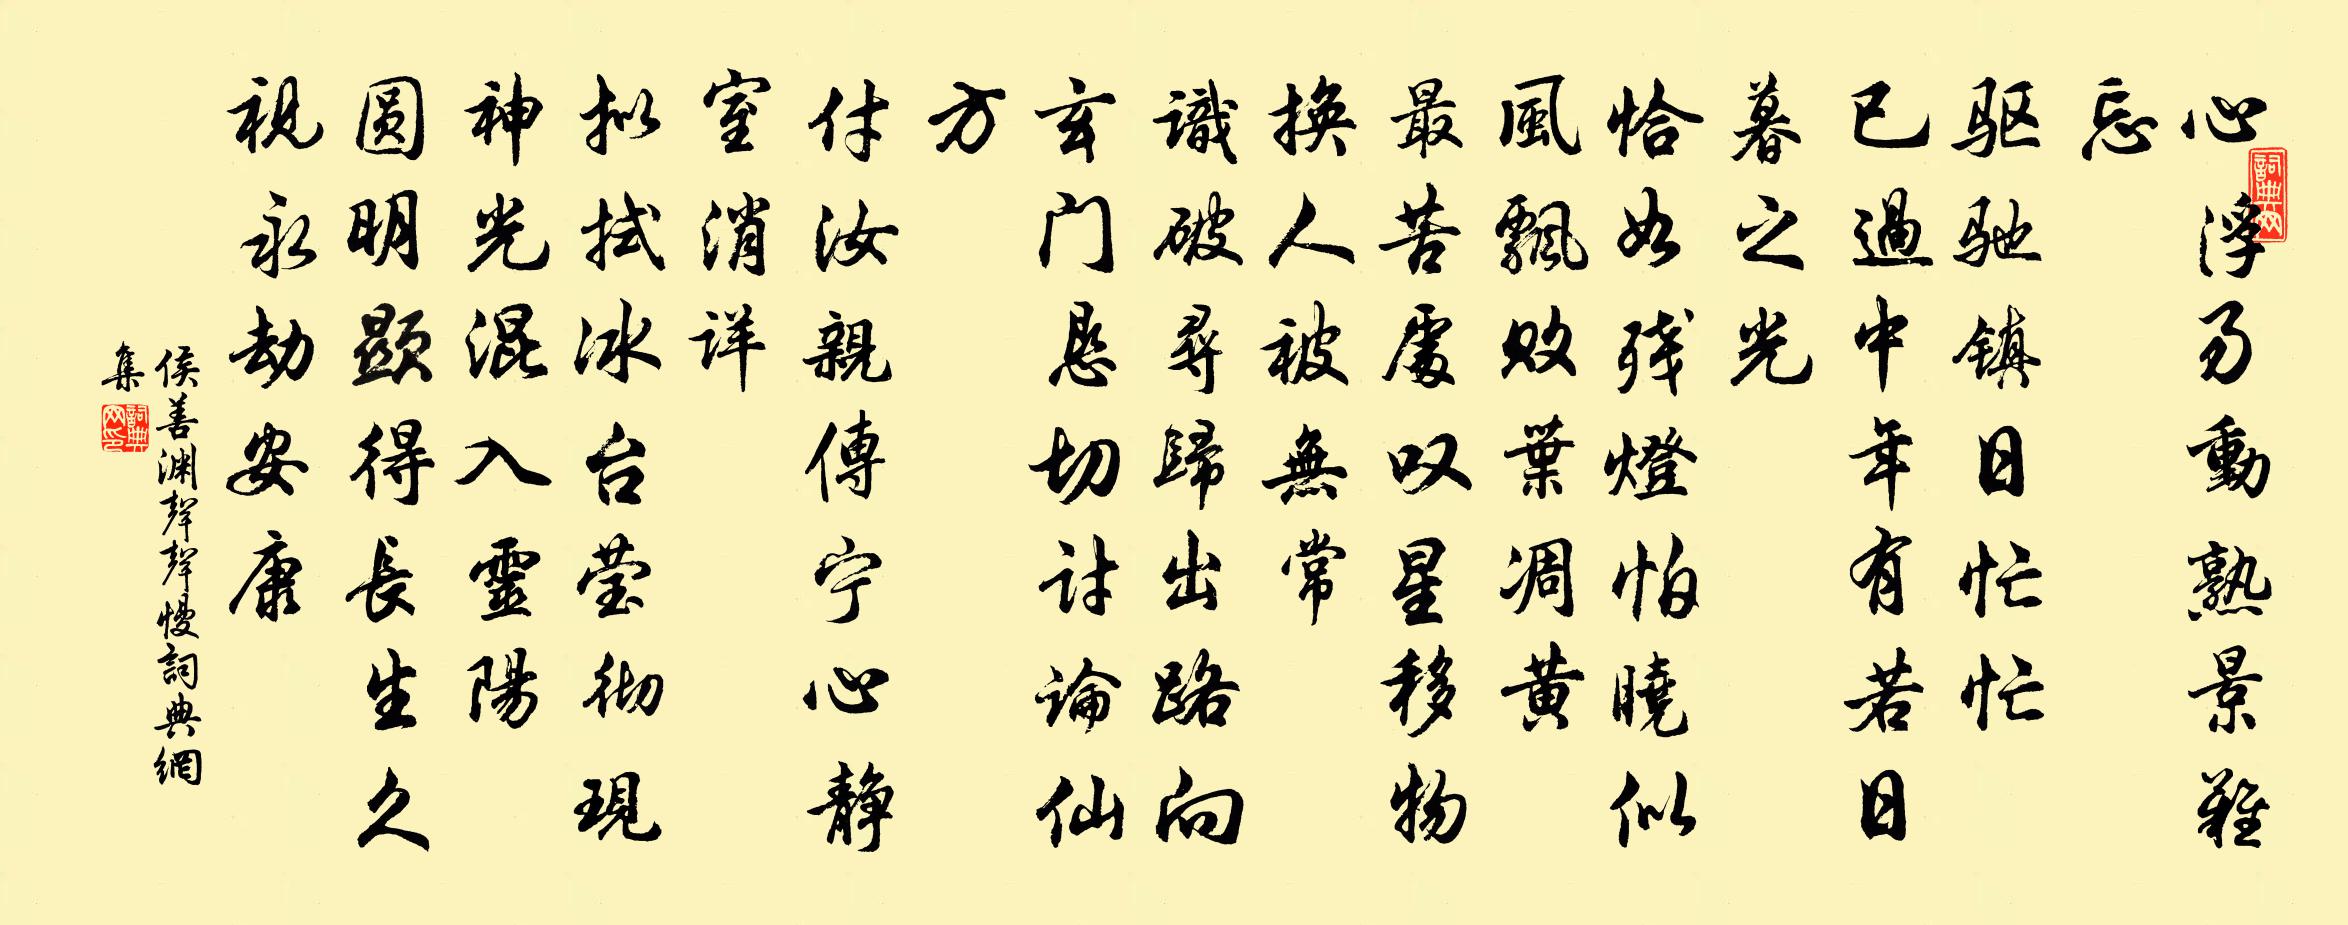 心浮易動熟景難
忘
驱驰镇日忙忙
已過中年有若日
暮之光
恰如残燈怕曉似
風飄败葉凋黄
最苦處叹星移物
换人被無常
識破尋歸出路向
玄门恳切討論仙
方
付汝親傳宁心静
室消详
拟拭冰台莹彻現
神光混入靈陽
圆明顯得長生久
視永劫安康
侯善渊聲聲慢詞典網
集
詞典网
詞典网印